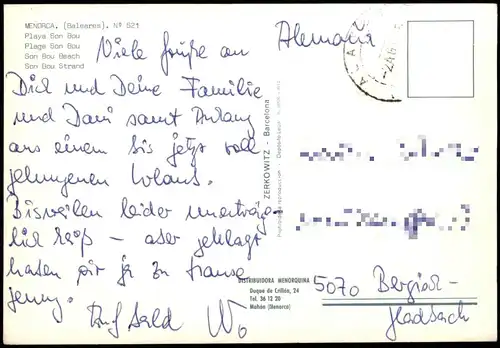 MENORCA, (Baleares). Nº 521
Playa Son Bou
Plage Son Bou
Son Bou Beach
Son Bou Strand
Viele Grüße an
Dich und Deine Familie
und Dani samt Anhang
aus einem bis jetzt voll
gelungenen Urlaub.
Bisweilen leider unerträg-
lich heiß – aber geklagt
haben wir ja zu Hause
genug.
Auf bald
Alemania
ZERKOWITZ - Barcelona
DISTRIBUIDORA MENORQUINA
Duque de Crillón, 24
Tel. 36 12 20
Mahón (Menorca)
5070 Bergisch-
Gladbach